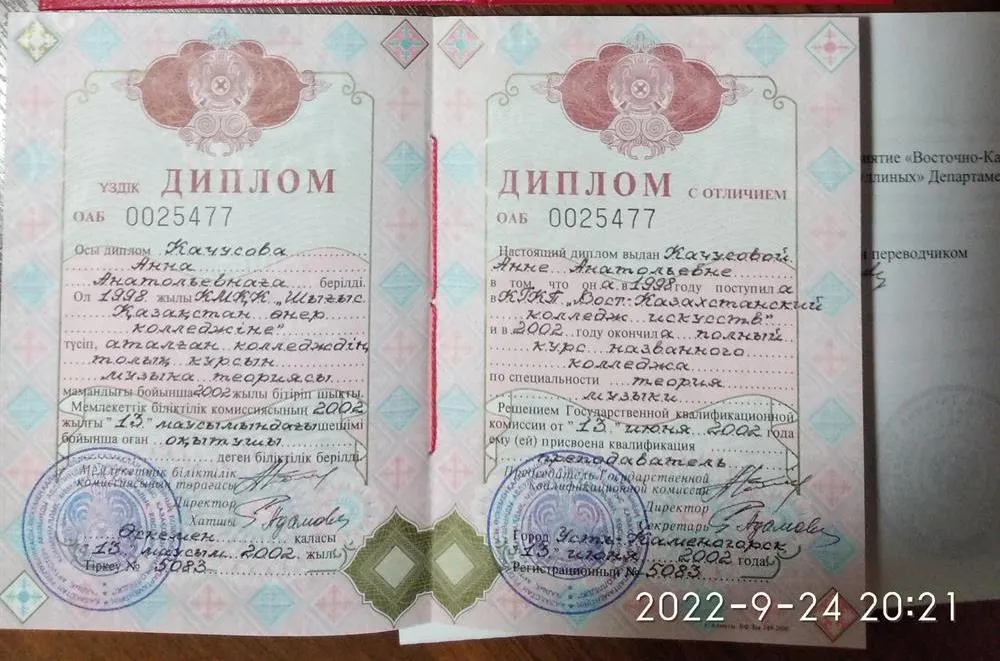 ҮЗДІК ДИПЛОМ
ОАБ 0025477
Осы диплом Качусова
Анна
Анатольевнаға берілді.
Ол 1998 жылы КМҚК "Шығыс
Қазақстан өнер
колледжіне"
түсіп, аталған колледждің
толық курсын
музыка теориясы
мамандығы бойынша 2002 жылы бітіріп шықты.
Мемлекеттік біліктілік комиссиясының 2002
жылғы "13" маусымындағы шешімі
бойынша оған оқытушы
деген біліктілік берілді.
Мемлекеттік біліктілік
комиссиясының төрағасы
Директор
Хатшы
Өскемен қаласы
13 маусым 2002 жыл
Тіркеу № 5083
ДИПЛОМ С ОТЛИЧИЕМ
ОАБ 0025477
Настоящий диплом выдан Качусовой
Анне Анатольевне
в том, что он а в 1998 году поступил а
в КГКП "Вост-Казахстанский
колледж искусств"
и в 2002 году окончил а полный
курс названного
колледжа
по специальности теория
музыки
Решением Государственной квалификационной
комиссии от "13" июня 2002 года
ему (ей) присвоена квалификация
преподаватель
Председатель Государственной
Квалификационной комиссии
Директор
Секретарь
Город Усть-Каменогорск
"13" июня 2002 года
Регистрационный № 5083
иятие «Восточно-Ка
длиных» Департаме
переводчиком
2022-9-24 20:21